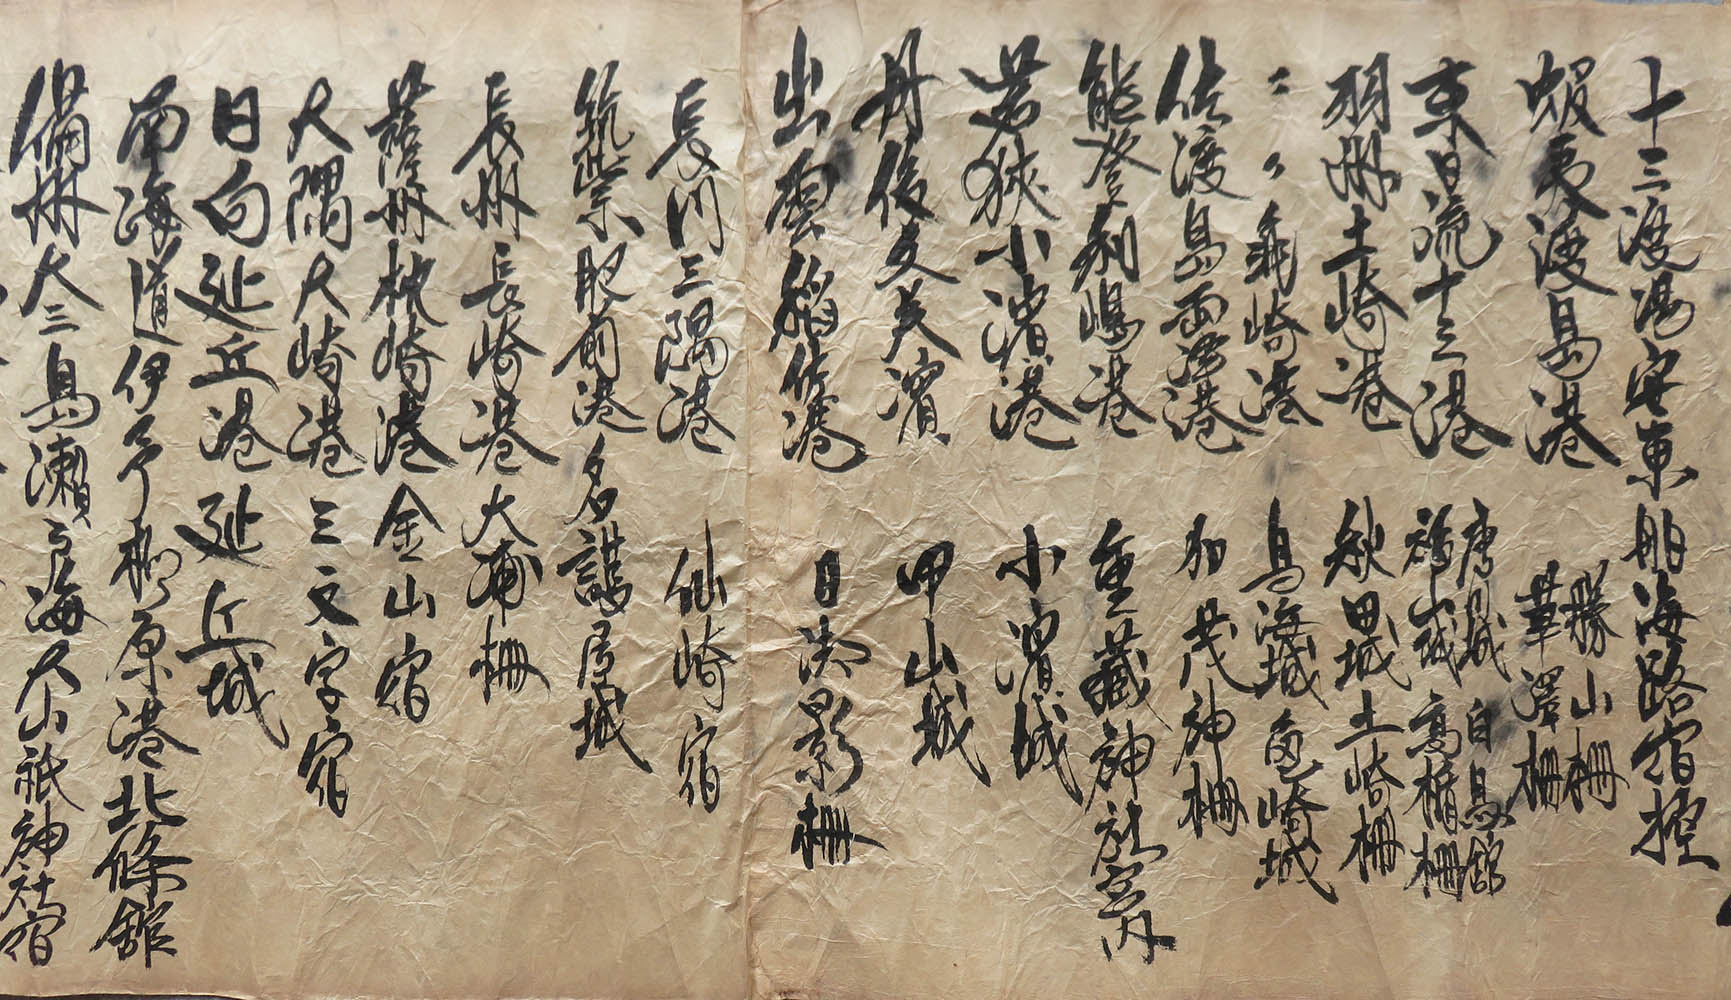 十三渡湯安東船海路宿控
蝦夷渡島港 勝山柵
華澤柵
東日流十三港 唐城 白鳥舘
福城 高楯柵
羽州土崎港 秋田城 土崎柵
〃〃 亀崎港 鳥海城 亀崎城
佐渡島両港 加茂神柵
能登利嶋港 重蔵神社
若狭小濱港 小濱城
丹後文夫濱 甲山城
出雲稲佐港 日御影柵
長門三隅港 仙崎宿
筑紫肥前港 名護屋城
長州長崎港 大浦柵
薩州枕崎港 金山宿
大隅大崎港 三文字宿
日向延丘港 延丘城
南海道伊予柳原港北條舘
備州大三島瀬戸海大山祇神社宿